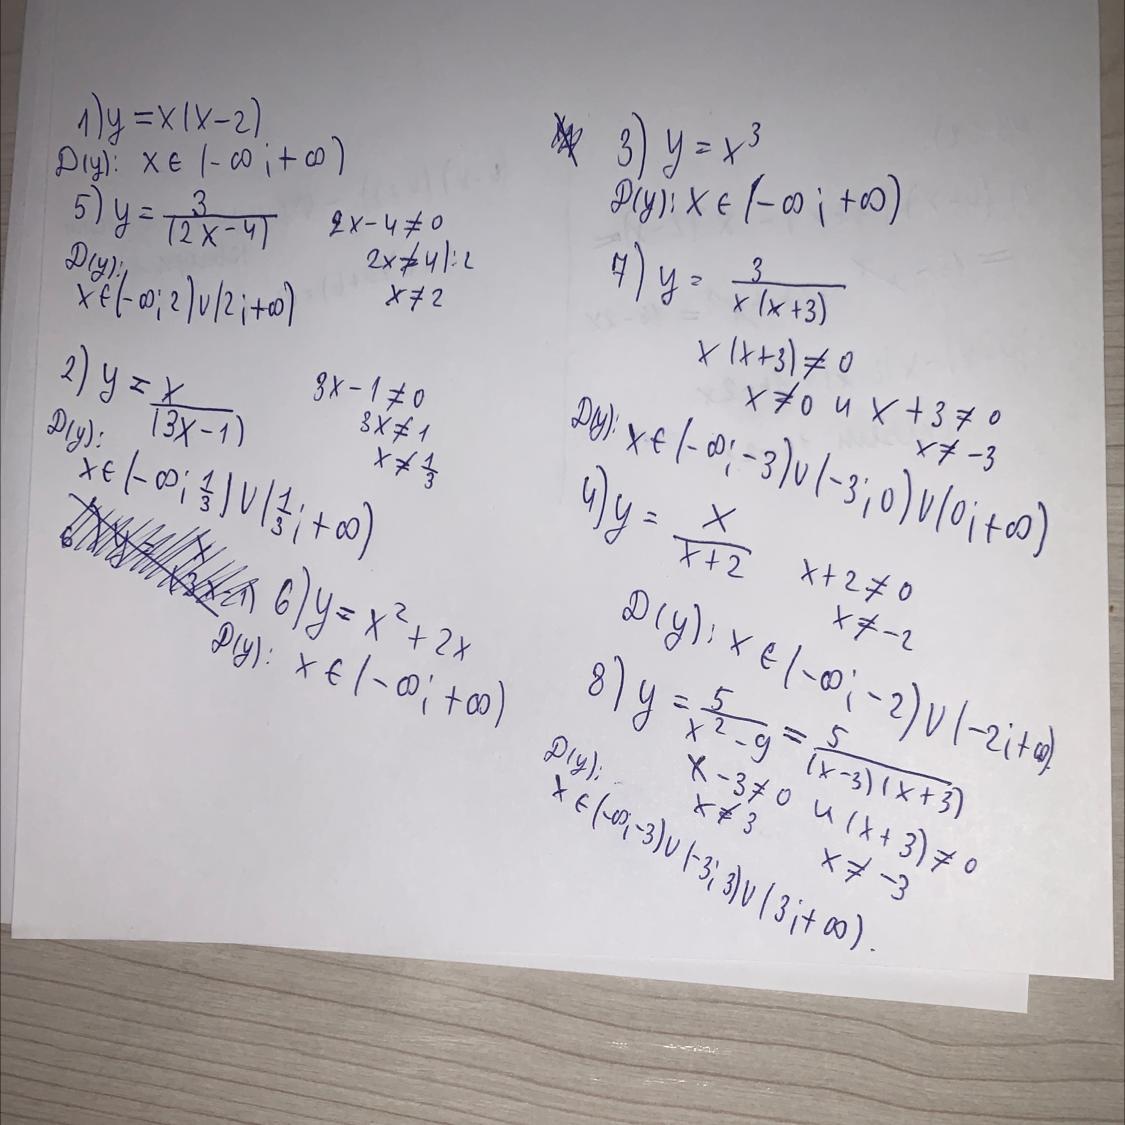 1) y = x(x-2)
D(y): x ∈ (-∞; +∞)
5) y = 3/(2x-4)
2x-4≠0
2x≠4|:2
x≠2
D(y):
x∈(-∞;2)∪(2;+∞)
2) y = x/(3x-1)
3x-1≠0
3x≠1
x≠1/3
D(y):
x∈(-∞; 1/3)∪(1/3; +∞)
6) y = x²+2x
D(y): x∈(-∞; +∞)
3) y = x³
D(y): x∈(-∞; +∞)
7) y = 3/(x(x+3))
x(x+3)≠0
x≠0 и x+3≠0
x≠-3
D(y): x∈(-∞;-3)∪(-3;0)∪(0;+∞)
4) y = x/(x+2)
x+2≠0
x≠-2
D(y): x∈(-∞;-2)∪(-2;+∞).
8) y = 5/(x²-9) = 5/((x-3)(x+3))
x-3≠0 и (x+3)≠0
x≠3
x≠-3
D(y):
x∈(-∞;-3)∪(-3;3)∪(3;+∞).